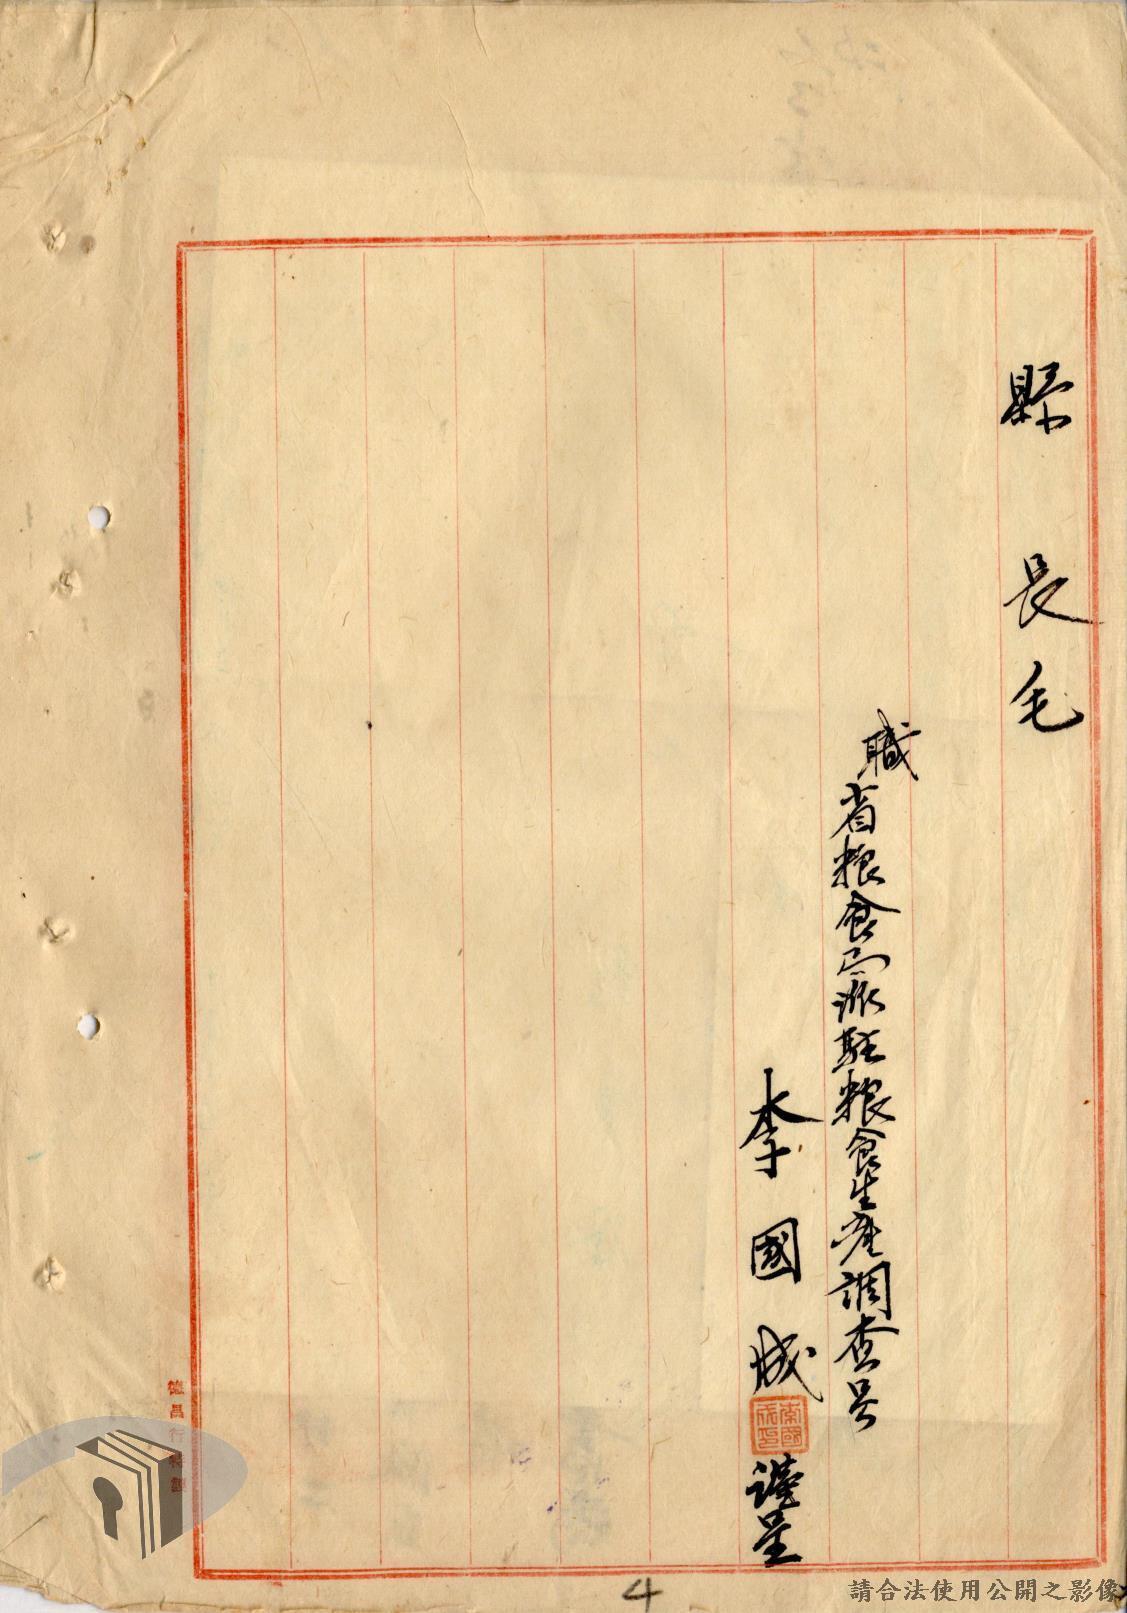 縣長毛
職省粮食局派駐粮食生産調查員
李國成
李國成印
謹呈
德昌行
4
請合法使用公開之影像